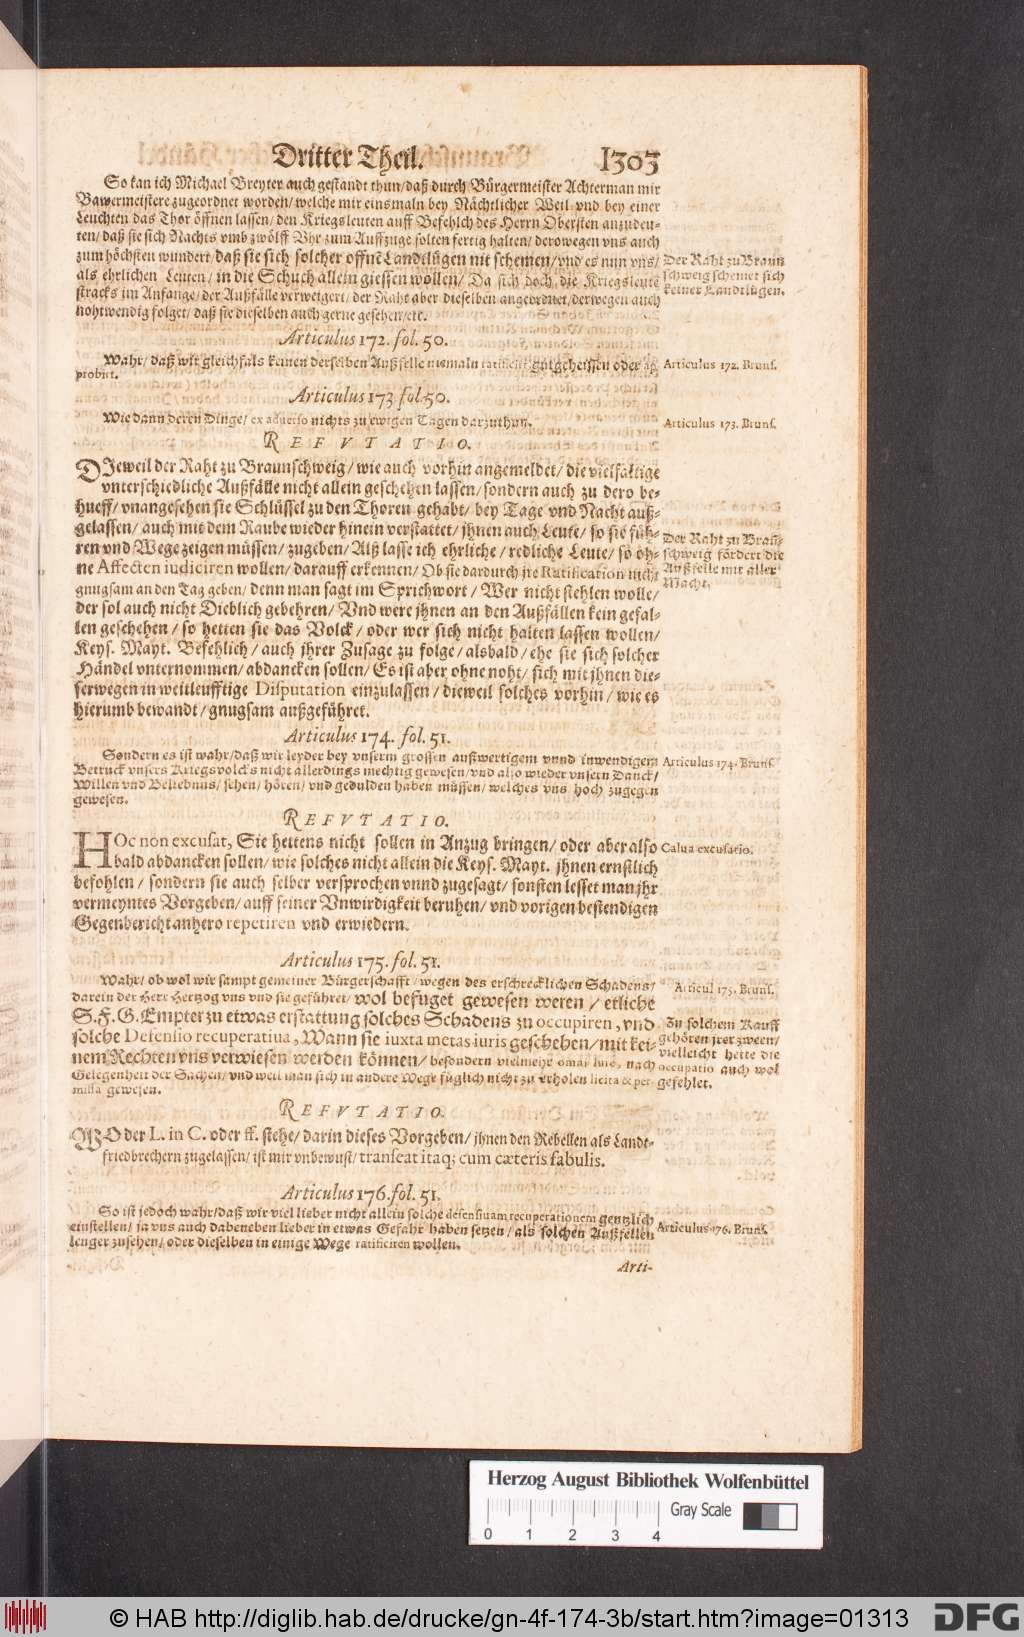 Dritter Theil. 1303
So kan ich Michael Breyter auch gestandt thun/daß durch Bürgermeister Achterman mir
Bawermeistere zugeordnet worden/welche mir einsmaln bey Nächtlicher Weil vnd bey einer
Leuchten das Thor öffnen lassen/den Kriegsleuten auff Befehlch des Herrn Obersten anzudeu-
ten/daß sie sich Nachts vmb zwölff Vhr zum Auffzuge solten fertig halten/derowegen vns auch
zum höchsten wundert/daß sie sich solcher offnē Landtlügen nit schemen/vnd es nun vns/
als ehrlichen Leuten/in die Schuch allein giessen wollen/Da sich doch die Kriegsleute
stracks im Anfange/der Außfälle verweigert/der Raht aber dieselben angeordnet/derwegen auch
nohtwendig folget/daß sie dieselben auch gerne gesehen/etc.
Der Raht zu Braun
schweig schemet sich
keiner Landtlügen.
Articulus 172. fol. 50.
Wahr/daß wir gleichfals keinen derselben Außfelle niemaln ratificirt/gutgeheissen oder ap
probirt.
Articulus 172. Bruns.
Articulus 173 fol. 50.
Wie dann deren Dinge/ex aduerso nichts zu ewigen Tagen darzuthun.
Articulus 173. Bruns.
REFVTATIO.
DJeweil der Raht zu Braunschweig/wie auch vorhin angemeldet/die vielfaltige
vnterschiedliche Außfälle nicht allein geschehen lassen/sondern auch zu dero be-
hueff/vnangesehen sie Schlüssel zu den Thoren gehabt/bey Tage vnd Nacht auß-
gelassen/auch mit dem Raube wieder hinein verstattet/jhnen auch Leute/so sie füh-
ren vnd Wege zeigen müssen/zugeben/Alß lasse ich ehrliche/redliche Leute/so oh-
ne Affecten iudiciren wollen/darauff erkennen/Ob sie dardurch jre Ratification nicht
gnugsam an den Tag geben/denn man sagt im Sprichwort/Wer nicht stehlen wolle/
der sol auch nicht Dieblich gebehren/Vnd were jhnen an den Außfällen kein gefal-
len geschehen/so hetten sie das Volck/oder wer sich nicht halten lassen wollen/
Keys. Mayt. Befehlich/auch jhrer Zusage zu folge/alsbald/ehe sie sich solcher
Händel vnternommen/abdancken sollen/Es ist aber ohne noht/sich mit jhnen die-
serwegen in weitleufftige Disputation einzulassen/dieweil solches vorhin/wie es
hierumb bewandt/gnugsam außgeführet.
Der Raht zu Braun-
schweig fördert die
Außfelle mit aller
Macht.
Articulus 174. fol. 51.
Sondern es ist wahr/daß wir leyder bey vnserm grossen außwertigem vnnd inwendigem
Betruck vnsers Kriegsvolcks nicht allerdings mechtig gewesen/vnd also wieder vnsern Danck/
Willen vnd Beliebnus/sehen/hören/vnd gedulden haben müssen/welches vns hoch zugegen
gewesen.
Articulus 174. Bruns.
REFVTATIO.
HOc non excusat, Sie hettens nicht sollen in Anzug bringen/oder aber also
bald abdancken sollen/wie solches nicht allein die Keys. Mayt. jhnen ernstlich
befohlen/sondern sie auch selber versprochen vnnd zugesagt/sonsten lesset man jhr
vermeyntes Vorgeben/auff seiner Vnwirdigkeit beruhen/vnd vorigen bestendigen
Gegenbericht anhero repetiren vnd erwiedern.
Calua excusatio.
Articulus 175. fol. 51.
Wahr/ob wol wir sampt gemeiner Bürgerschafft/wegen des erschrecklichen Schadens/
darein der Herr Hertzog vns vnd sie geführet/wol befuget gewesen weren/etliche
S. F. G. Empter zu etwas erstattung solches Schadens zu occupiren, vnd
solche Defensio recuperatiua, Wann sie iuxta metas iuris geschehen/mit kei-
nem Rechten vns verwiesen werden können/besondern vielmehr omni iure, nach
Gelegenheit der Sachen/vnd weil man sich in andere Wege füglich nicht zu erholen licita & per-
missa gewesen.
Articul 175. Bruns.
Zu solchem Kauff
gehören jrer zween/
vielleicht hette die
occupatio auch wol
gefehlet.
REFVTATIO.
WO der L. in C. oder ff. stehe/darin dieses Vorgeben/jhnen den Rebellen als Landt-
friedbrechern zugelassen/ist mir vnbewust/transeat itaq; cum cæteris fabulis.
Articulus 176. fol. 51.
So ist jedoch wahr/daß wir viel lieber nicht allein solche defensiuam recuperationem gentzlich
einstellen/ja vns auch dabeneben lieber in etwas Gefahr haben setzen/als solchen Außfellen
lenger zusehen/oder dieselben in einige Wege ratificiren wollen.
Articulus 176. Bruns.
Arti-
Herzog August Bibliothek Wolfenbüttel
Gray Scale
0 1 2 3 4
© HAB http://diglib.hab.de/drucke/gn-4f-174-3b/start.htm?image=01313
DFG